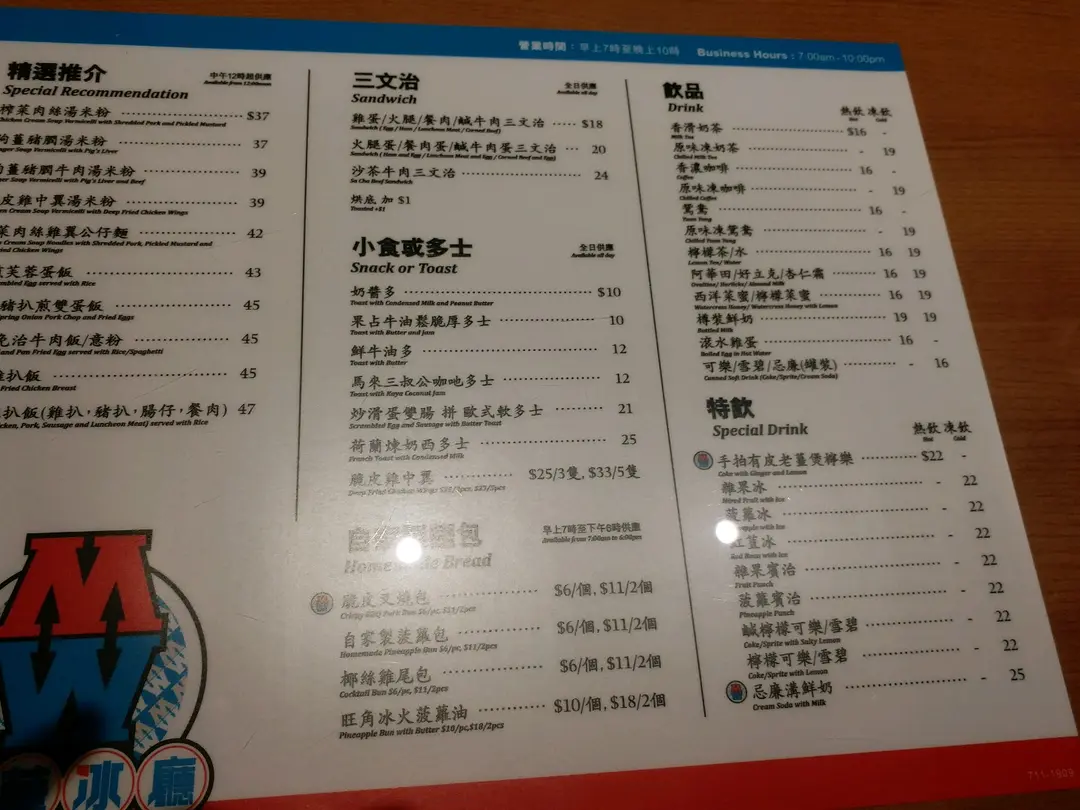 營業時間：早上7時至晚上10時 Business Hours : 7:00am - 10:00pm
精選推介 中午12時起供應
Special Recommendation Available from 12:00noon
榨菜肉絲湯米粉 $37
Chicken Cream Soup Vermicelli with Shredded Pork and Pickled Mustard
薑豬膶湯米粉 37
Ginger Soup Vermicelli with Pig's Liver
薑豬膶牛肉湯米粉 39
Ginger Soup Vermicelli with Pig's Liver and Beef
皮雞中翼湯米粉 39
Cream Soup Vermicelli with Deep Fried Chicken Wings
菜肉絲雞翼公仔麵 42
Cream Soup Noodles with Shredded Pork, Pickled Mustard and
Fried Chicken Wings
芙蓉蛋飯 43
Scrambled Egg served with Rice
豬扒煎雙蛋飯 45
Spring Onion Pork Chop and Fried Eggs
免治牛肉飯/意粉 45
and Pan Fried Egg served with Rice/Spaghetti
扒飯 45
Fried Chicken Breast
扒飯(雞扒，豬扒，腸仔，餐肉) 47
Chicken, Pork, Sausage and Luncheon Meat) served with Rice
三文治 全日供應
Sandwich Available all day
雞蛋/火腿/餐肉/鹹牛肉三文治 $18
Sandwich (Egg / Ham / Luncheon Meat / Corned Beef)
火腿蛋/餐肉蛋/鹹牛肉蛋三文治 20
Sandwich ( Ham and Egg / Luncheon Meat and Egg / Corned Beef and Egg)
沙茶牛肉三文治 24
Sa Cha Beef Sandwich
烘底 加 $1
Toasted +$1
小食或多士 全日供應
Snack or Toast Available all day
奶醬多 $10
Toast with Condensed Milk and Peanut Butter
果占牛油鬆脆厚多士 10
Toast with Butter and Jam
鮮牛油多 12
Toast with Butter
馬來三叔公咖吔多士 12
Toast with Kaya Coconut Jam
炒滑蛋雙腸 拼 歐式軟多士 21
Scrambled Egg and Sausage with Butter Toast
荷蘭煉奶西多士 25
French Toast with Condensed Milk
脆皮雞中翼 $25/3隻, $33/5隻
Deep Fried Chicken Wings $25/3pcs, $33/5pcs
自 包 早上7時至下午6時供應
Homemade Bread Available from 7:00am to 6:00pm
脆皮叉燒包 $6/個, $11/2個
Crispy BBQ Pork Bun $6/pc, $11/2pcs
自家製菠蘿包 $6/個, $11/2個
Homemade Pineapple Bun $6/pc, $11/2pcs
椰絲雞尾包 $6/個, $11/2個
Cocktail Bun $6/pc, $11/2pcs
旺角冰火菠蘿油 $10/個, $18/2個
Pineapple Bun with Butter $10/pc,$18/2pcs
飲品 熱飲 凍飲
Drink Hot Cold
香滑奶茶 $16 -
Milk Tea
原味凍奶茶 - 19
Chilled Milk Tea
香濃咖啡 16 -
Coffee
原味凍咖啡 - 19
Chilled Coffee
鴛鴦 16 -
Yuan Yang
原味凍鴛鴦 - 19
Chilled Yuan Yang
檸檬茶/水 16 19
Lemon Tea/ Water
阿華田/好立克/杏仁霜 16 19
Ovaltine/ Horlicks/ Almond Milk
西洋菜蜜/檸檬菜蜜 16 19
Watercress Honey/ Watercress Honey with Lemon
樽裝鮮奶 19 19
Bottled Milk
滾水雞蛋 16 -
Boiled Egg in Hot Water
可樂/雪碧/忌廉(罐裝) - 16
Canned Soft Drink (Coke/Sprite/Cream Soda)
特飲 熱飲 凍飲
Special Drink Hot Cold
手拍有皮老薑煲檸樂 $22 -
Coke with Ginger and Lemon
雜果冰 - 22
Mixed Fruit with Ice
菠蘿冰 - 22
Pineapple with Ice
紅荳冰 - 22
Red Bean with Ice
雜果賓治 - 22
Fruit Punch
菠蘿賓治 - 22
Pineapple Punch
鹹檸檬可樂/雪碧 - 22
Coke/Sprite with Salty Lemon
檸檬可樂/雪碧 - 22
Coke/Sprite with Lemon
忌廉溝鮮奶 - 25
Cream Soda with Milk
MW
冰廳
711-1909